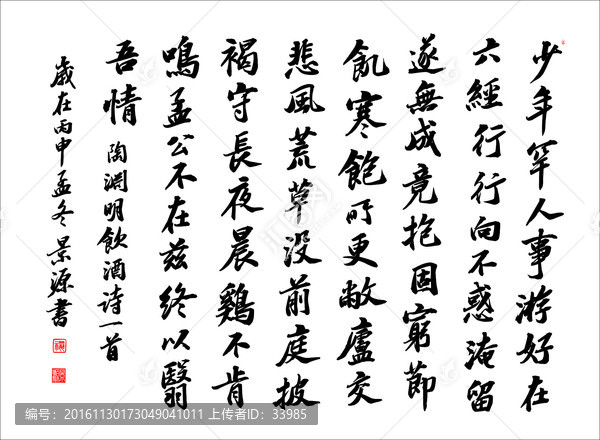 少年罕人事游好在
六經行行向不惑淹留
遂無成竟抱固窮節
飢寒飽所更敝廬交
悲風荒草没前庭披
褐守長夜晨鷄不肯
鳴孟公不在兹終以翳
吾情 陶淵明飲酒诗一首
歲在丙申孟冬景源書
编号：20161130173049041011 上传者ID：33985